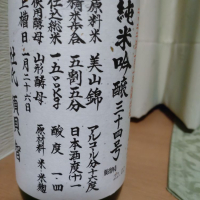 純米吟醸三十四号
原料米 美山錦 アルコール分十六度
精米歩合 五割五分 日本酒度 十一
仕込総米 一五〇〇kg 酸度 一・四
使用酵母 山形酵母 原材料 米 米麹
上槽日 一月二十六日
杜氏